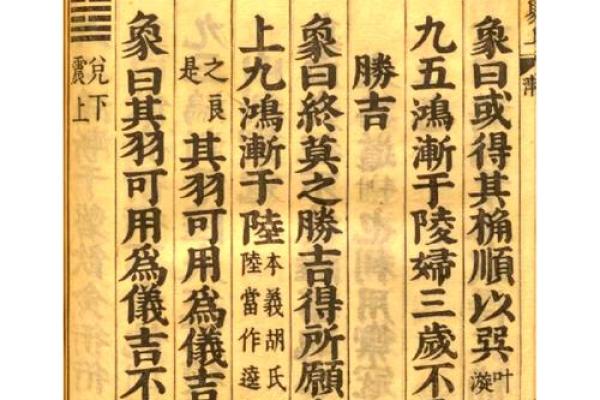 象曰或得其桷順以巽叶漩
九五鴻漸于陵婦三歲不
勝吉
象曰終莫之勝吉得所願
上九鴻漸于陸本義胡氏陸當作逵
之良是其羽可用爲儀吉
象曰其羽可用爲儀吉不
兌下震上